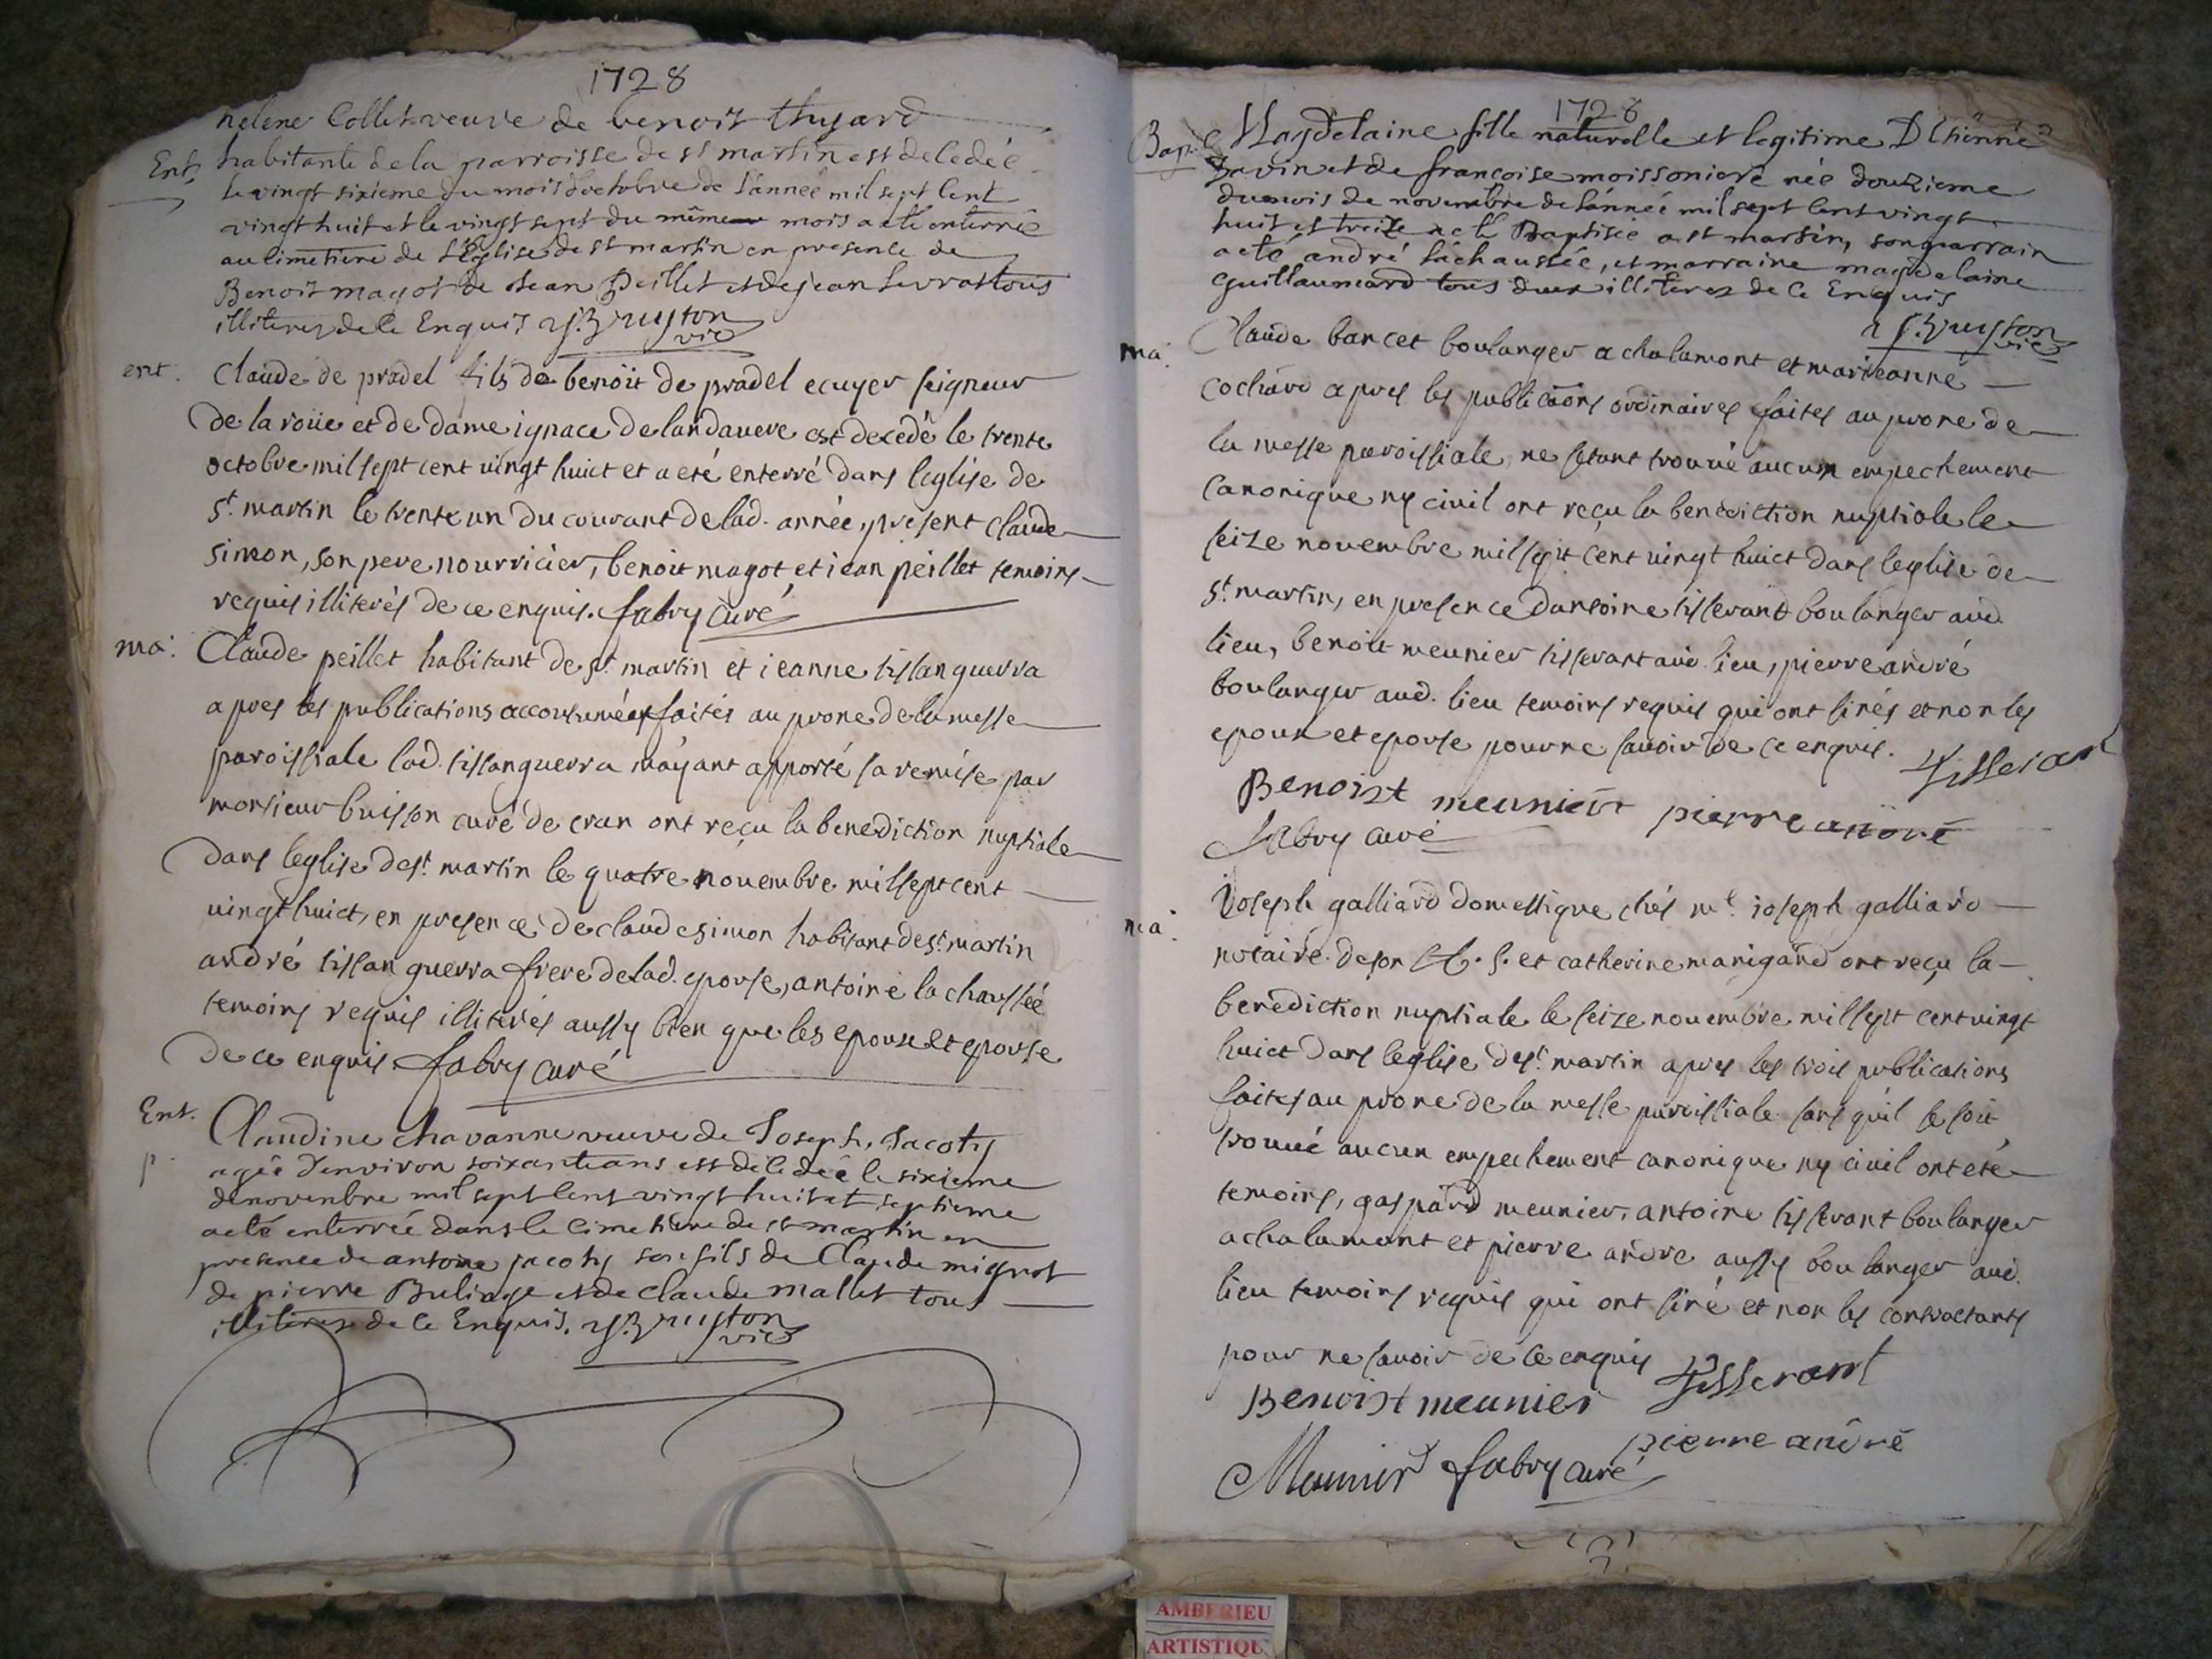 1728
helene Collet veuve de benoit thugard
Ent. habitante de la parroisse de st martin est decedée
le vingt sixieme du mois d'octobre de l'année mil sept cent
vingt huit et le vingt sept du même mois a eté enterrée
au cimetiere de l'église de st martin en presence de
Benoit magot de Jean Peillet et de jean tous
illiterez de ce Enquis Bruyton
vic
ent. Claude de pradel fils de benoit de pradel ecuyer seigneur
de la roüe et de dame ignace de landavere est decedé le trente
octobre mil sept cent vingt huict et a eté enterré dans l'eglise de
st. martin le trente un du courant de lad. année, present claude
simon, son pere nourricier, benoit magot et iean peillet temoins
requis illiterés de ce enquis. fabry curé
ma. Claude peillet habitant de st. martin et ieanne tissanguerra
apres les publications accoutumées faites au prone de la messe
paroissiale lad. tissanguerra m'ayant apporté sa remise par
monsieur buisson curé de cran ont reçu la benediction nuptiale
dans l'eglise de st. martin le quatre novembre mil sept cent
vingt huict, en presence de claude simon habitant de st. martin
andré tissanguerra frere de lad. epouse, antoine la chaussée
temoins requis illiterés aussy bien que les epoux et epouse
de ce enquis fabry curé
Ent. Claudine chavanne veuve de Joseph Jacoty
p. agée d'environ soixante ans est decedée le sixieme
de novembre mil sept cent vingt huit et septieme
a eté enterrée dans le cimetiere de st martin en
presence de antoine jacoty son fils de Claude mignot
de pierre Buliage et de claude mallet tous
illiterez de ce Enquis. Bruyton
vic
1728
Bap. Magdelaine fille naturelle et legitime D'Etienne
Savin et de francoise moissoniere née douzieme
du mois de novembre de l'année mil sept cent vingt
huit et treize a eté Baptisée a st martin, son parrain
a eté andré lachaussée, et marraine magdelaine
guillaumard tous deux illiterez de ce Enquis
Bruyton
vic
ma. Claude bancet boulanger a chalamont et marieanne
cochard apres les publicaons ordinaires faites au prone de
la messe paroissiale, ne s'etant trouvé aucun empechement
canonique ny civil ont reçu la benediction nuptiale le
seize novembre mil sept cent vingt huict dans l'eglise de
st. martin, en presence d'antoine tisserand boulanger aud.
lieu, benoit meunier tisserant aud. lieu, pierre andré
boulanger aud. lieu temoins requis qui ont sinés et non les
epoux et epouse pour ne savoir de ce enquis. Tisserant
Benoist meunier pierre andré
fabry curé
ma. Joseph galliard domestique chés me. ioseph galliard
notaire de son et catherine manigand ont reçu la
benediction nuptiale le seize novembre mil sept cent vingt
huict dans l'eglise de st. martin apres les trois publications
faites au prone de la messe paroissiale sans qu'il se soit
trouvé aucun empechement canonique ny civil ont eté
temoins, gaspard meunier, antoine tisserant boulanger
a chalamont et pierre andre aussy boulanger aud.
lieu temoins requis qui ont siné et non les contractants
pour ne savoir de ce enquis Tisserant
Benoist meunier
pierre andré
Meunier fabry curé
AMBERIEU
ARTISTIQU